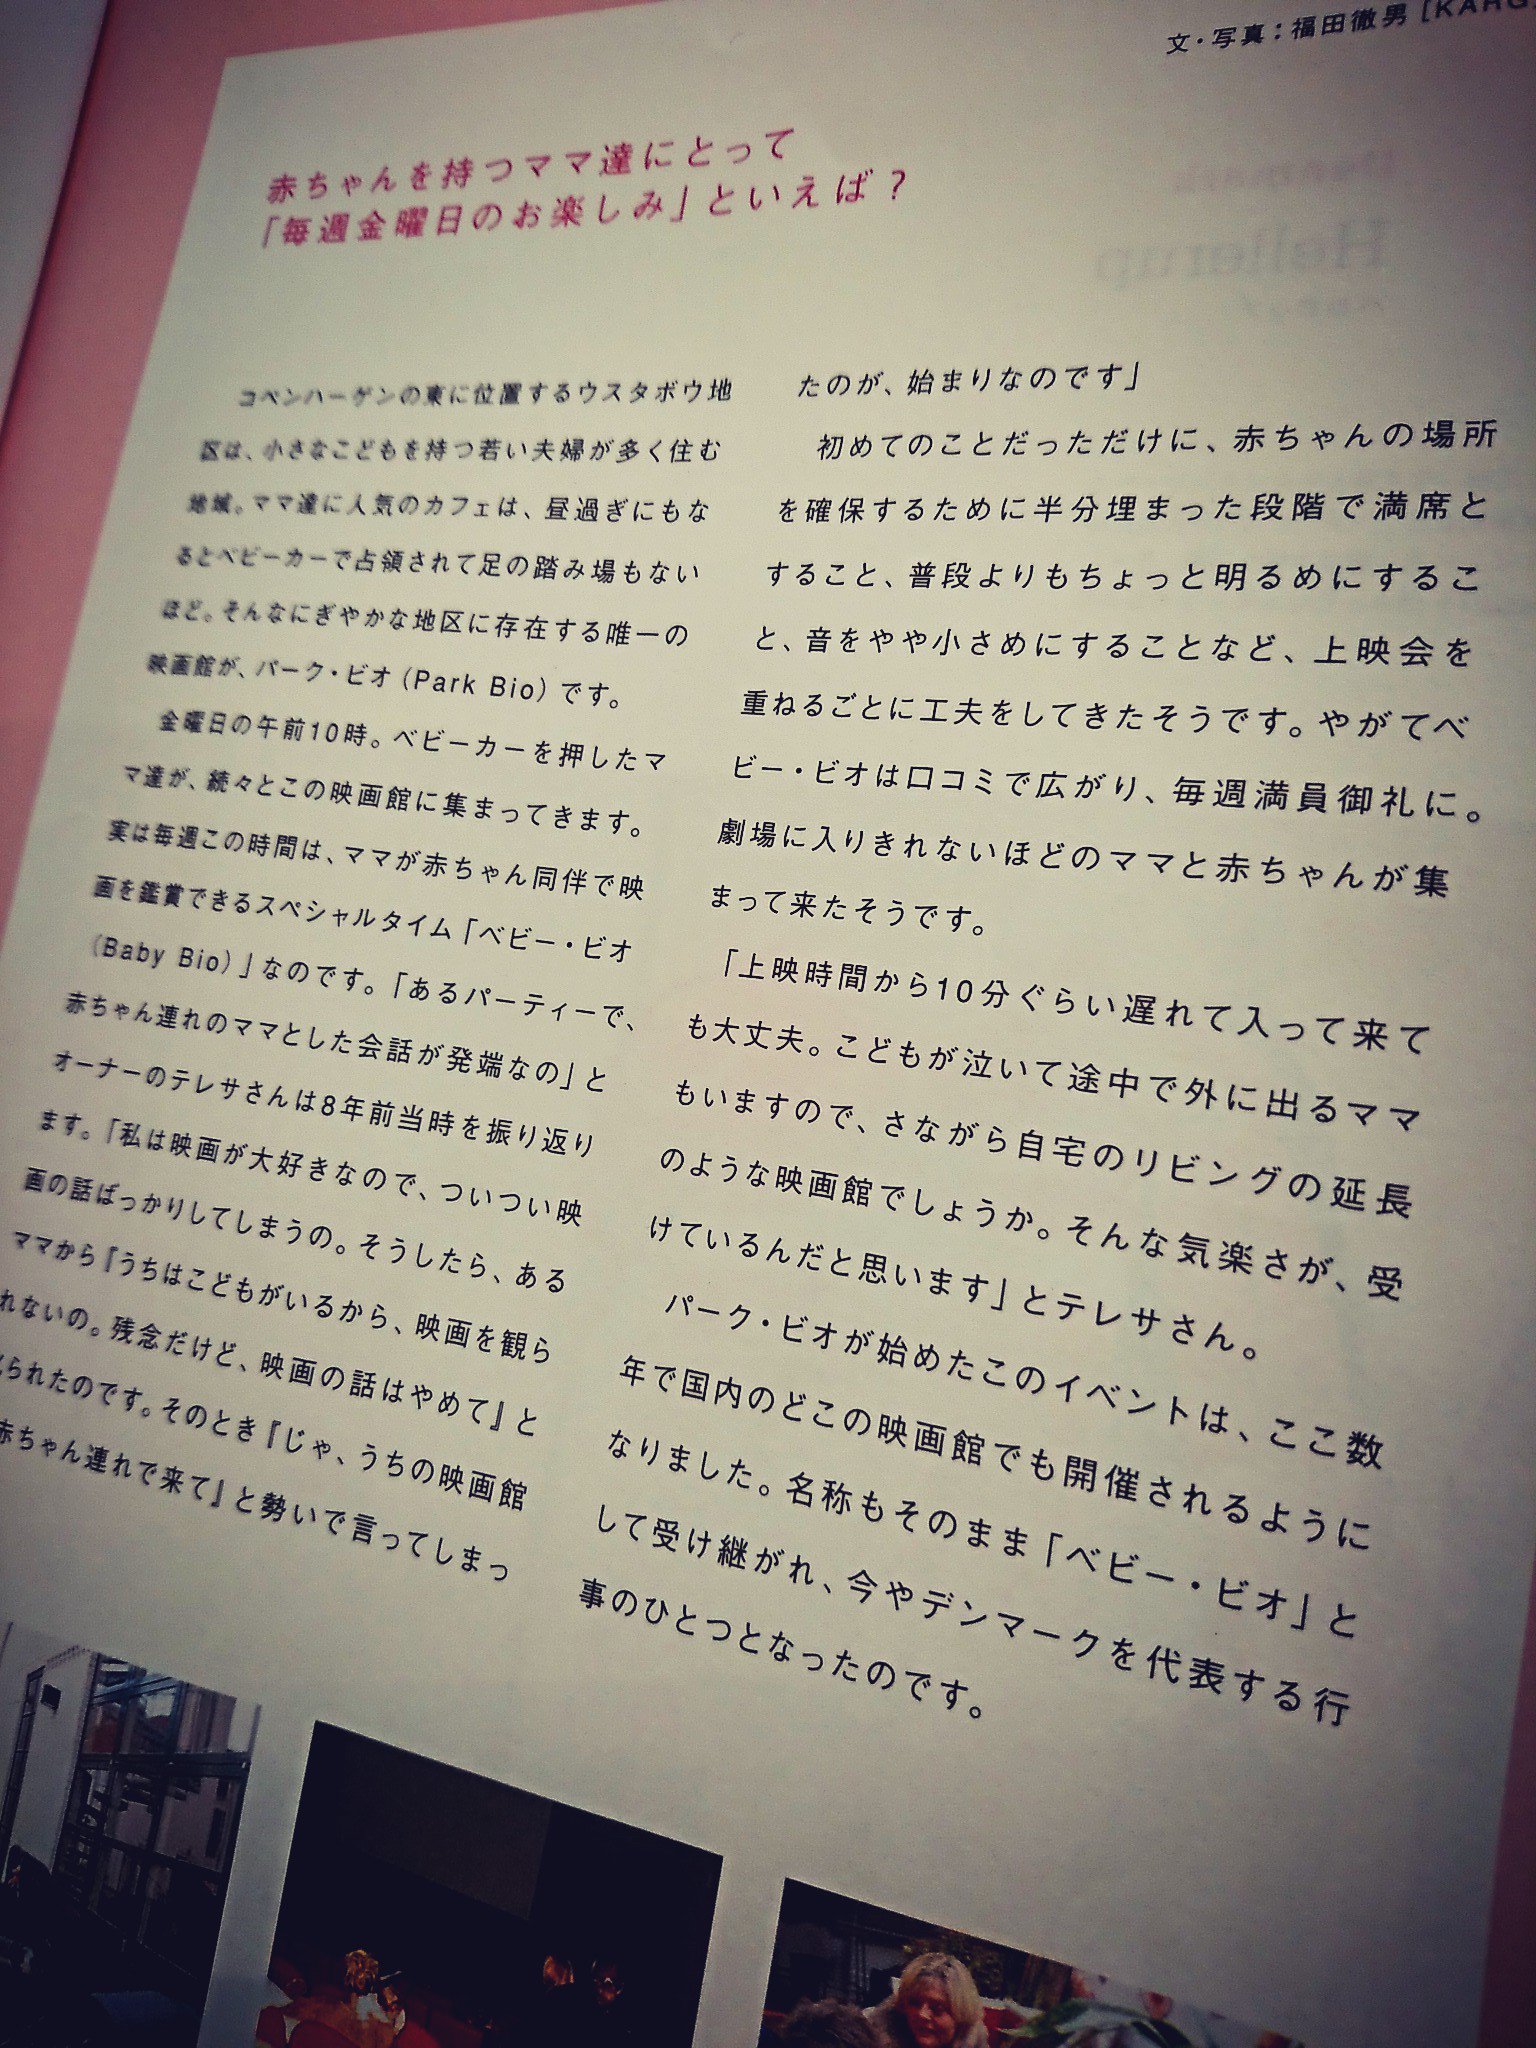 文・写真：福田徹男［KARG
赤ちゃんを持つママ達にとって
「毎週金曜日のお楽しみ」といえば？
コペンハーゲンの東に位置するウスタボウ地
区は、小さなこどもを持つ若い夫婦が多く住む
地域。ママ達に人気のカフェは、昼過ぎにもな
るとベビーカーで占領されて足の踏み場もない
ほど。そんなにぎやかな地区に存在する唯一の
映画館が、パーク・ビオ（Park Bio）です。
金曜日の午前10時。ベビーカーを押したマ
マ達が、続々とこの映画館に集まってきます。
実は毎週この時間は、ママが赤ちゃん同伴で映
画を鑑賞できるスペシャルタイム「ベビー・ビオ
（Baby Bio）」なのです。「あるパーティーで、
赤ちゃん連れのママとした会話が発端なの」と
オーナーのテレサさんは8年前当時を振り返り
ます。「私は映画が大好きなので、ついつい映
画の話ばっかりしてしまうの。そうしたら、ある
ママから『うちはこどもがいるから、映画を観ら
れないの。残念だけど、映画の話はやめて』と
られたのです。そのとき『じゃ、うちの映画館
赤ちゃん連れで来て』と勢いで言ってしまっ
たのが、始まりなのです」
初めてのことだっただけに、赤ちゃんの場所
を確保するために半分埋まった段階で満席と
すること、普段よりもちょっと明るめにするこ
と、音をやや小さめにすることなど、上映会を
重ねるごとに工夫をしてきたそうです。やがてベ
ビー・ビオは口コミで広がり、毎週満員御礼に。
劇場に入りきれないほどのママと赤ちゃんが集
まって来たそうです。
「上映時間から10分ぐらい遅れて入って来て
も大丈夫。こどもが泣いて途中で外に出るママ
もいますので、さながら自宅のリビングの延長
のような映画館でしょうか。そんな気楽さが、受
けているんだと思います」とテレサさん。
パーク・ビオが始めたこのイベントは、ここ数
年で国内のどこの映画館でも開催されるように
なりました。名称もそのまま「ベビー・ビオ」と
して受け継がれ、今やデンマークを代表する行
事のひとつとなったのです。